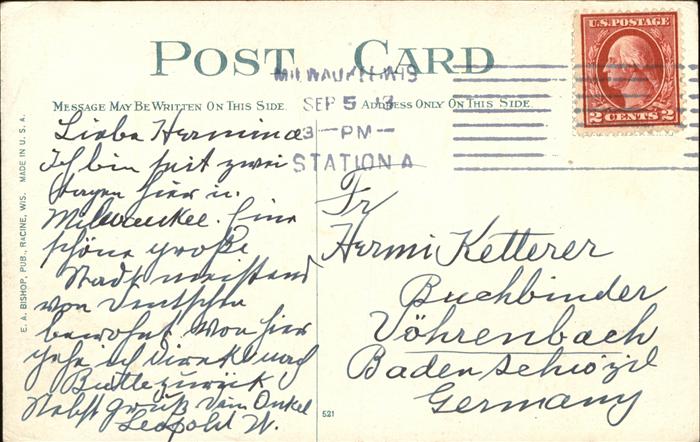 POST CARD
MILWAUKEE WIS
SEP 5
3-PM-
STATION A
MESSAGE MAY BE WRITTEN ON THIS SIDE
ADDRESS ONLY ON THIS SIDE
U.S. POSTAGE
2 CENTS 2
E. A. BISHOP, PUB., RACINE, WIS. MADE IN U. S. A.
Liebe Hermina
Ich bin seit zwei
Tagen hier in
Milwaukee. Eine
schöne große
Stadt meistens
von Deutschen
bewohnt von hier
gehe ich direkt nach
Butte zurück
Nebst Gruß Dein Onkel
Leopold W.
Fr
Hermi Ketterer
Buchbinder
Vöhrenbach
Baden
Germany
521